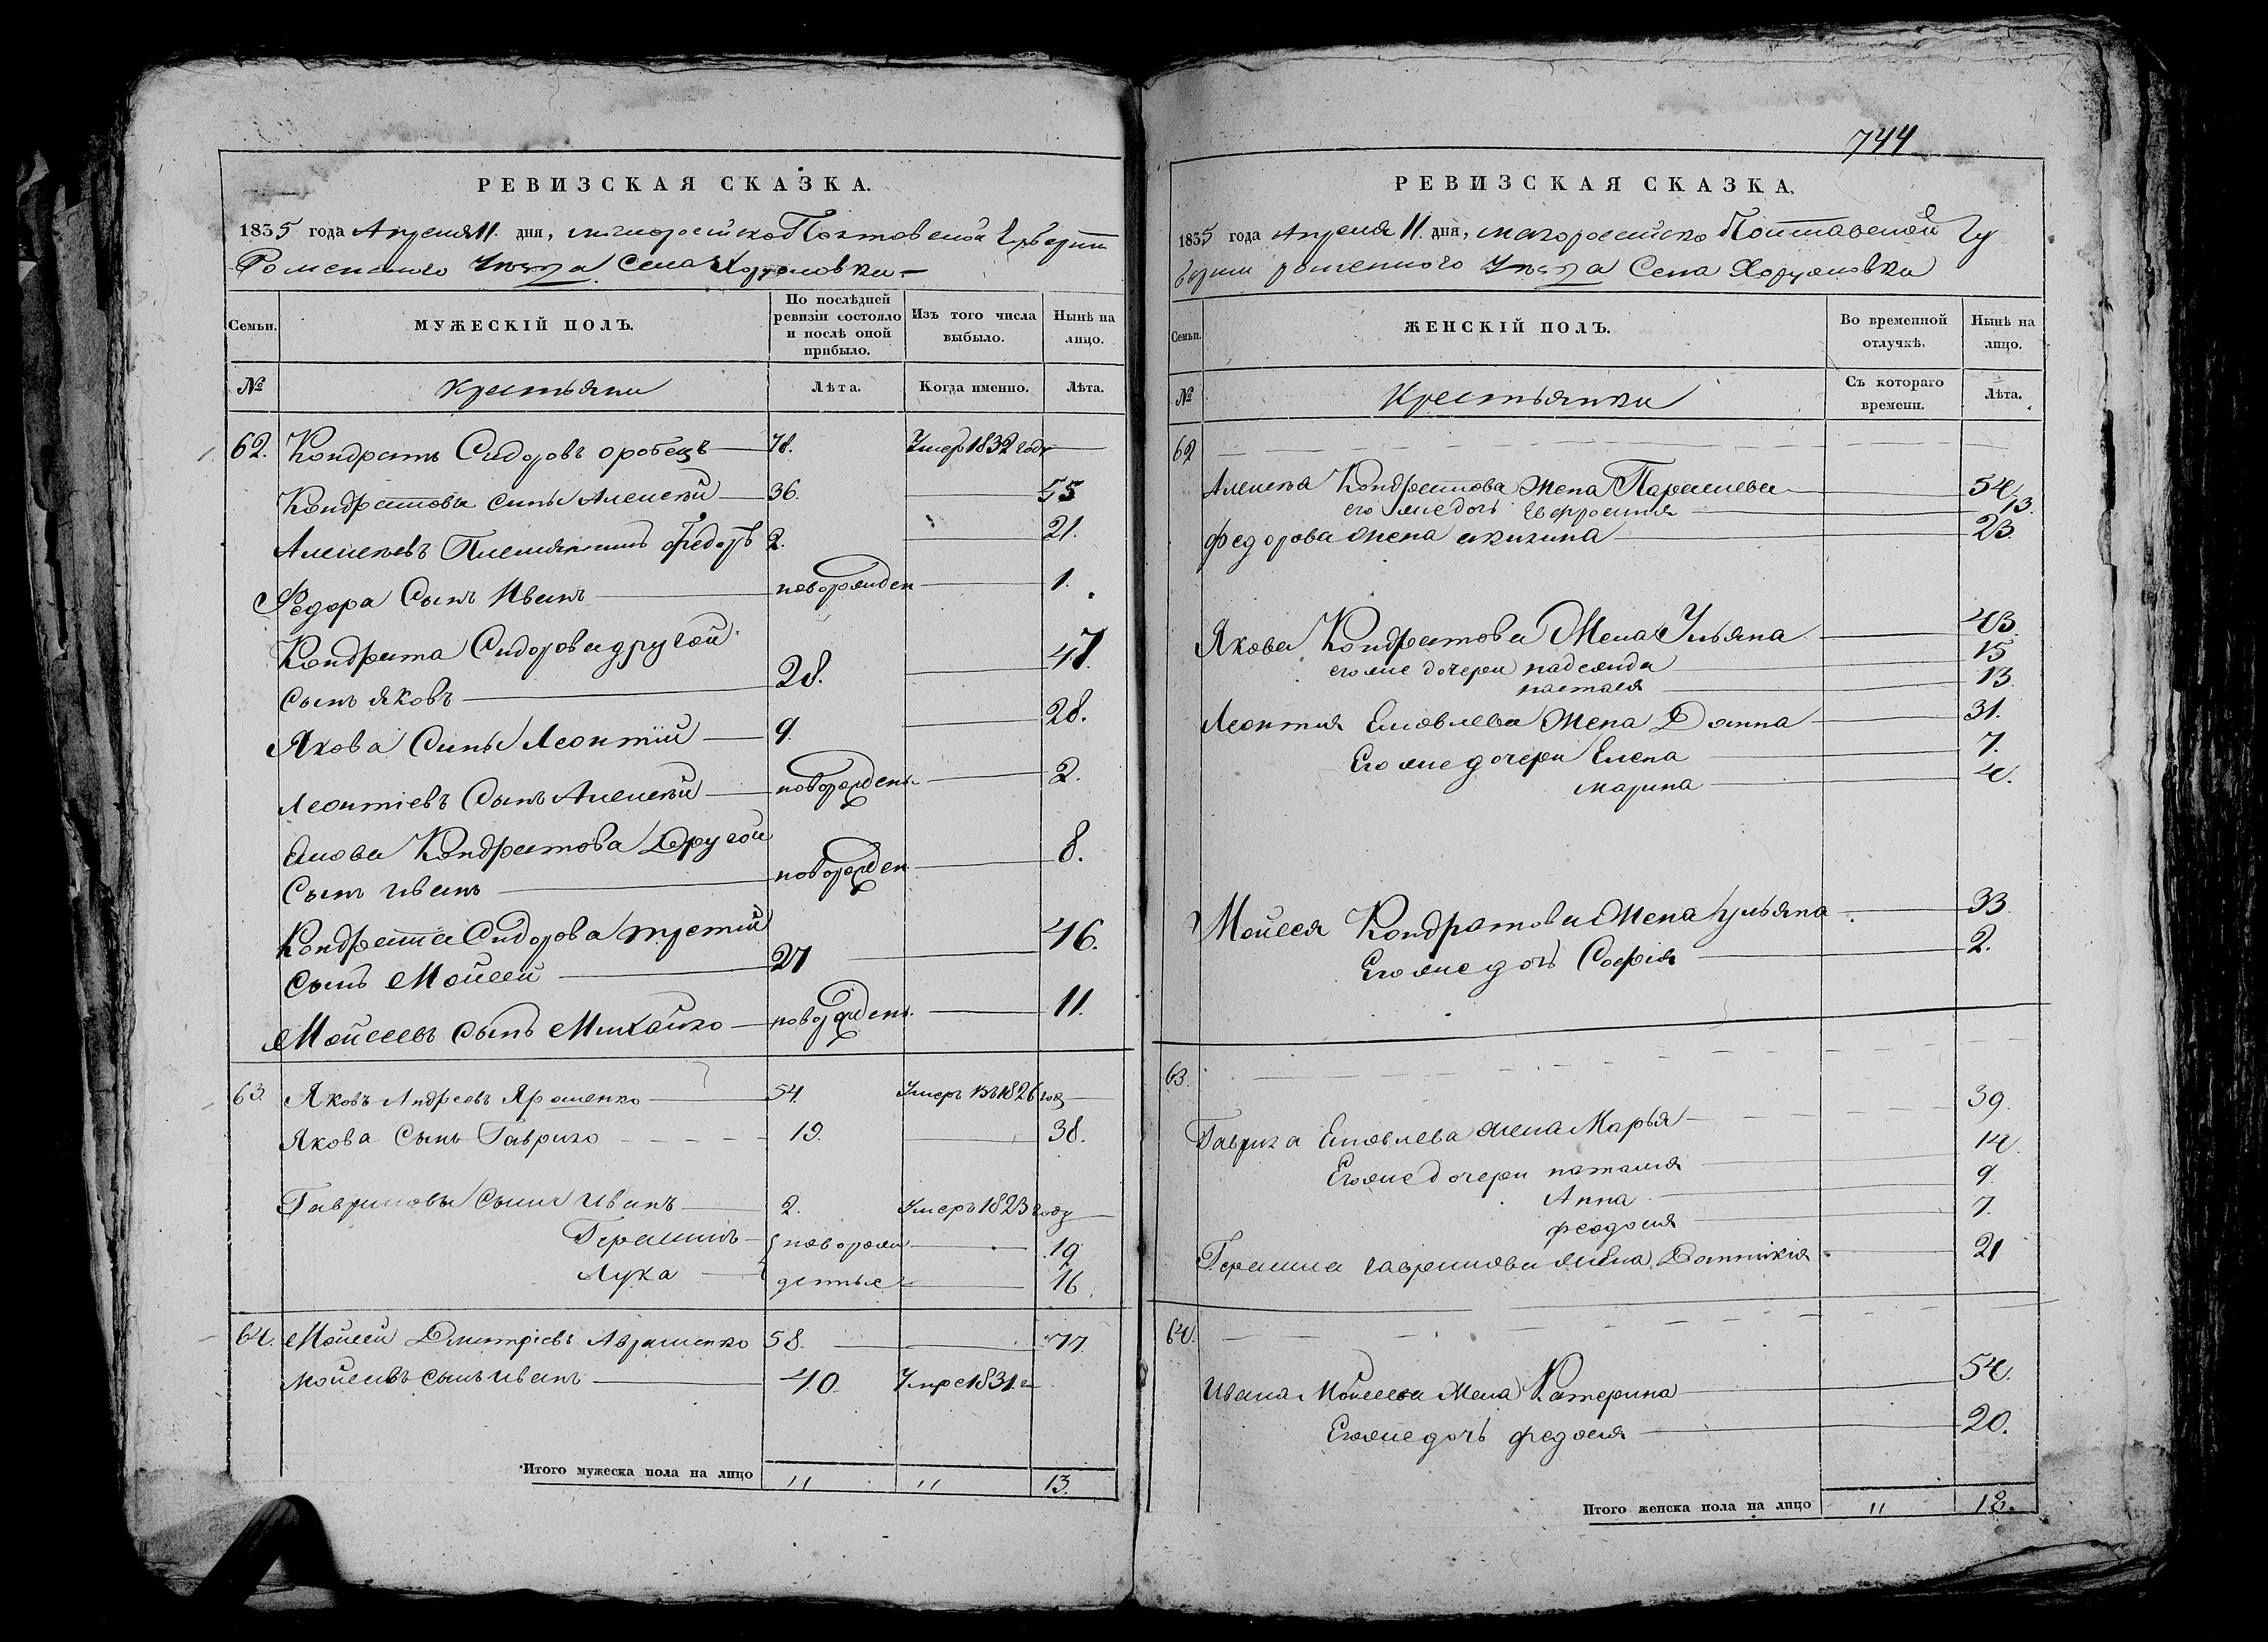 744
РЕВИЗСКАЯ СКАЗКА.
1835 года Апреля 11 дня, малоросейско Полтовской Губерни
Роменского Уезда Села Хоружовки
Семьи.
МУЖЕСКІЙ ПОЛЪ.
По послѣдней ревизіи состояло и послѣ оной прибыло.
Изъ того числа выбыло.
Нынѣ на лицо.
№
крестьяни
Лѣта.
Когда именно.
Лѣта.
62. Кондратъ Сидоровъ оробецъ 78. Умеръ 1832 году
Кондратова синъ Алексѣй 36. 55
Алексѣевъ Племянникъ Федоръ 2. 21.
Федора Сынъ Иванъ новорожден 1.
Кондрата Сидорова другой
сынъ яковъ 28. 47.
Якова Синъ Леонтий 9. 28.
Леонтіевъ Сынъ Алексѣй новорожденъ 2.
Якова Кондратова Другой
Сынъ иванъ новорожден 8.
Кондрата Сидорова третий
сынъ Мойсей 27 46.
Мойсеевъ сынъ Михайло новорожденъ 11.
63. Яковъ Андреевъ Ярошенко 54. Умеръ въ 1826 год
Якова Сынъ Гаврило 19. 38.
Гавриловы Сыни иванъ 2. Умеръ 1823 году
Герасимъ новорож 19
Лука денные 16
64. Мойсей Дмитріевъ Аврашенко 58. 77.
Мойсеевъ сынъ иванъ 40. Умре 1831. г
Итого мужеска пола на лицо " " 13.
РЕВИЗСКАЯ СКАЗКА.
1835 года Апреля 11 дня, малоросейско Полтавской Гу
берни роменного Уезда Села Хоружовки
Семьи.
ЖЕНСКІЙ ПОЛЪ.
Во временной отлучкѣ.
Нынѣ на лицо.
№
Крестьянки
Съ котораго времени.
Лѣта.
62
Алексѣя Кондратова жена Параскева 54
его же дочь Евфросиния 13.
федорова жена акилина 23.
Якова Кондратова Жена Ульяна 43.
его же дочери надежда 15
настася 13.
Леонтия Яковлева Жена Домна 31.
Его же дочери Елена 7.
марина 4.
Мойсея Кондратова Жена ульяна 33.
Его же дочь Софія 2.
63.
Гаврила Яковлева жена Марья 39.
Его же дочери наталия 14.
Анна 9.
феодосия 7.
Герасима гаврилова жена Домникія 21
64.
Ивана Мойсеева Жена Катерина 54.
Его же дочь федосия 20.
Итого женска пола на лицо " 18.